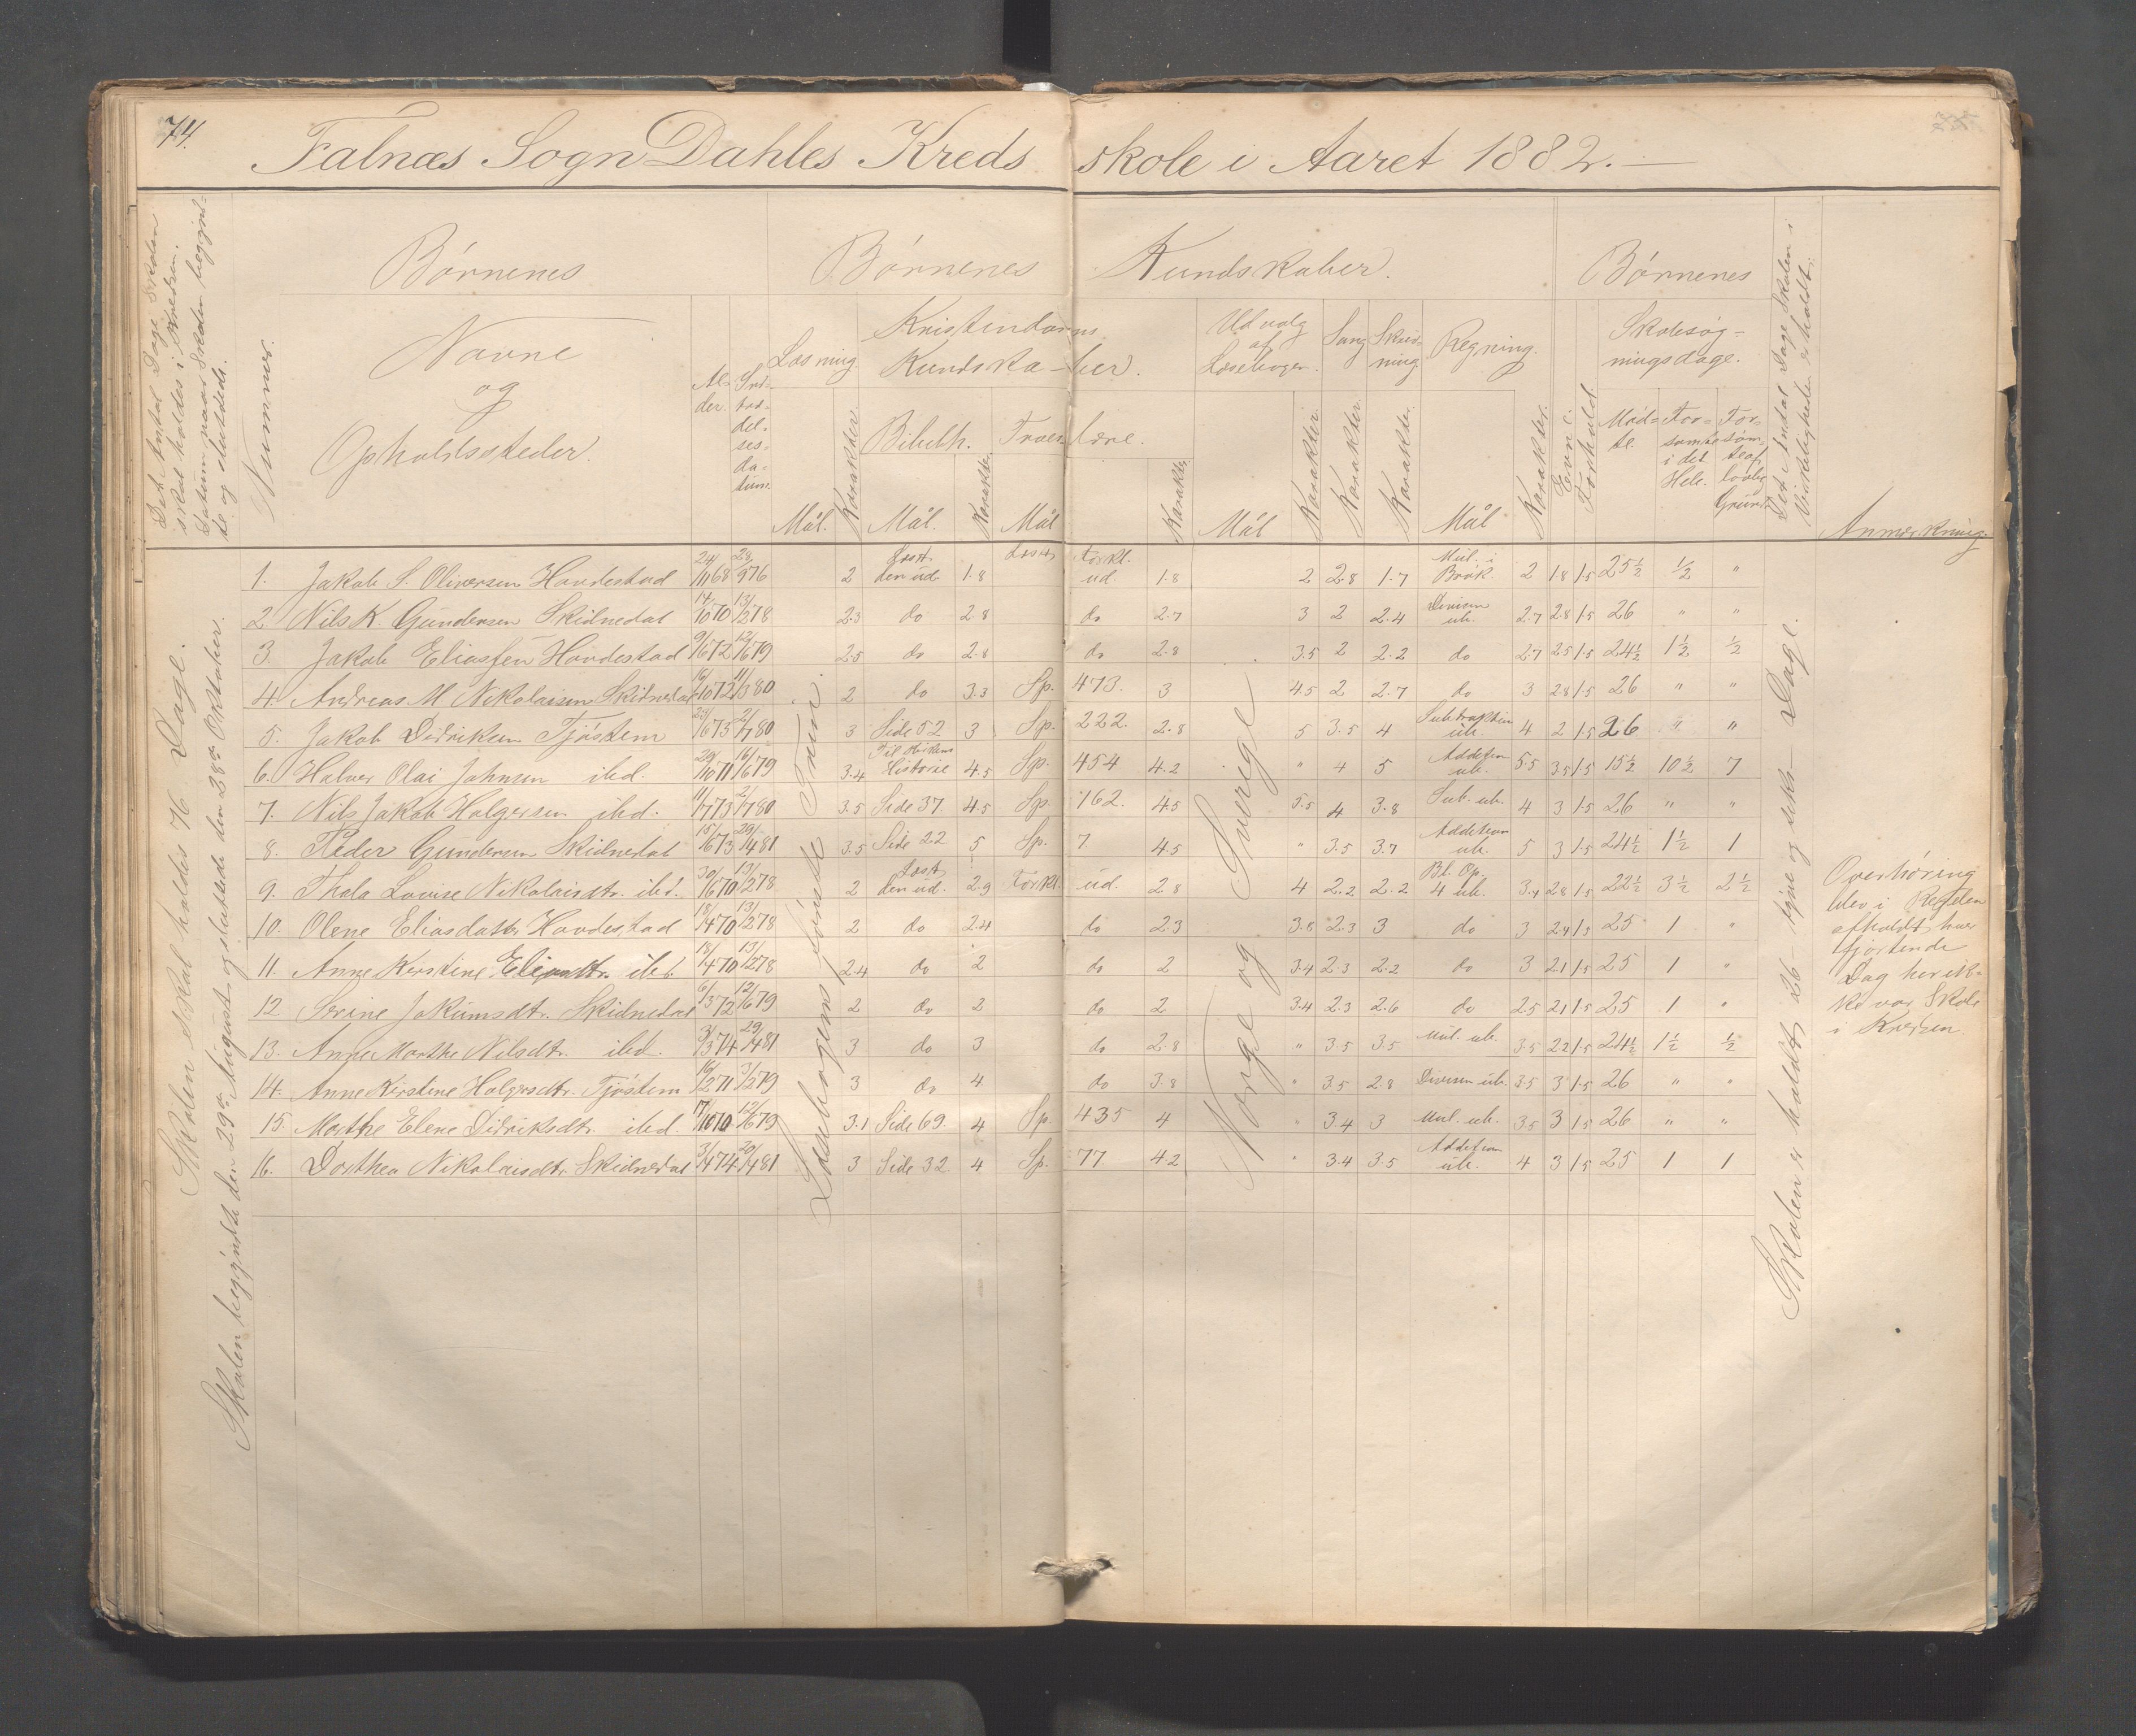 74.
Falnæs Sogn Dahles Kreds skole i Aaret 1882.
Det Antal Dage Skolen
skal holdes i Kredsen.
Datum naar Skolen begynd-
te og sluttede.
Nummer.
Børnenes
Navne
og
Opholdssteder.
Al-
der.
Ind-
træ-
del-
ses-
da-
tum.
Børnenes Kundskaber.
Læsning.
Mål.
Karakter.
Kristendoms
Kundska-ber.
Bibelh.
Mål.
Karakter.
Troeslære.
Mål
Karakter.
Udvalg
af
Læsebogen.
Mål
Karakter.
Sang
Karakter.
Skriv-
ning.
Karakter.
Regning.
Mål
Karakter.
Evne.
Forhold.
Børnenes
Skolesøg-
ningsdage.
Mød-
te.
For-
sømte
i det
Hele.
For-
søm-
te af
lovlig
Grund.
Det Antal Dage Skolen i
Virkeligheden er holdt.
Anmerkning.
1. Jakob S. Oliversen Hovdestad 24/11 68 28/9 76 2 Læst den ud. 1.8 Læst forkl. ud. 1.8 2 2.8 1.7 Mul. i Brøk. 2 1.8 1.5 25½ ½ "
2 Nils K. Gundersen Skidnedal 14/10 70 13/2 78 2.3 do 2.8 do 2.7 3 2 2.4 Division ub. 2.7 2.8 1.5 26 " "
3. Jakob Eliassen Hovdestad 9/6 72 12/6 79 2.5 do 2.8 do 2.8 3.5 2 2.2 do 2.7 2.5 1.5 24½ 1½ ½
4. Andreas M Nikolaisen Skidnedal 16/10 72 11/3 80 2 do 3.3 Sp. 473. 3 4.5 2 2.7 do 3 2.8 1.5 26 " "
5. Jakob Didriksen Tjøstem 23/6 73 2/7 80 3 Side 52 3 Sp. 222. 2.8 5 3.5 4 Subtraktion ub. 4 2 1.5 26 " "
6. Halvor Olai Johnsen ibd. 29/10 71 16/6 79 3.4 Til Kirkens Historie 4.5 Sp. 454 4.2 " 4 5 Addition ub. 5.5 3.5 1.5 15½ 10½ 7
7. Nils Jakob Holgersen ibd. 11/7 73 2/7 80 3.5 Side 37. 4.5 Sp. 162. 4.5 5.5 4 3.8 Sub. ub. 4 3 1.5 26 " "
8. Peder Gundersen Skidnedal 15/6 73 29/4 81 3.5 Side 22 5 Sp. 7 4.5 " 3.5 3.7 Addition ub. 5 3 1.5 24½ 1½ 1
9. Thala Lovise Nikolaisdtr. ibd. 30/6 70 13/2 78 2 Læst den ud. 2.9 forkl. ud. 2.8 4 2.2 2.2 Bl. Op. 4 ub. 3.4 2.8 1.5 22½ 3½ 2½
10. Olene Eliasdatr. Hovdestad 18/4 70 13/2 78 2 do 2.4 do 2.3 3.8 2.3 3 do 3 2.4 1.5 25 1 "
11. Anne Kirstine Eliasdtr. ibd. 18/4 70 13/2 78 2.4 do 2 do 2 3.4 2.3 2.2 do 3 2.1 1.5 25 1 "
12. Serine Jokumsdtr. Skidnedal 6/3 72 12/6 79 2 do 2 do 2 3.4 2.3 2.6 do 2.5 2.1 1.5 25 1 "
13. Anne Marthe Nilsdtr. ibd. 3/3 74 29/4 81 3 do 3 do 2.8 " 3.5 3.5 Mul. ub. 3.5 2.2 1.5 24½ 1½ ½
14. Anne Kirstine Holgersdtr. Tjøstem 16/2 71 3/2 79 3 do 4 do 3.8 " 3.5 2.8 Division ub. 3.5 3 1.5 26 " "
15. Marthe Elene Didriksdtr. ibd. 17/10 70 12/6 79 3.1 Side 69. 4 Sp. 435 4 " 3.4 3 Mul. ub. 3.5 3 1.5 26 " "
16. Dorthea Nikolaisdtr. Skidnedal 3/4 74 20/4 81 3 Side 32 4 Sp. 77 4.2 " 3.4 3.5 Addition ub. 4 3 1.5 25 1 1
Skolen skal holdes 76 Dage.
Skolen begyndte den 29de August og sluttede den 28de Oktober.
Læsebogens
Norge og Sverige
Skolen er holdt 26 - tyve og seks - Dage.
Overhøring
blev i Regelen
afholdt hver
fjortende
Dag her ik-
ke var Skole
i Kredsen.